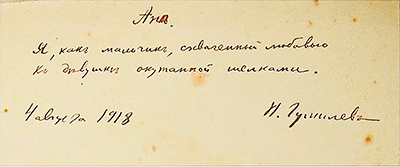 Ане.
Я, какъ мальчик, схваченный любовью
къ дѣвушкѣ окутанной шелками.
4 августа 1918 Н. Гумилевъ